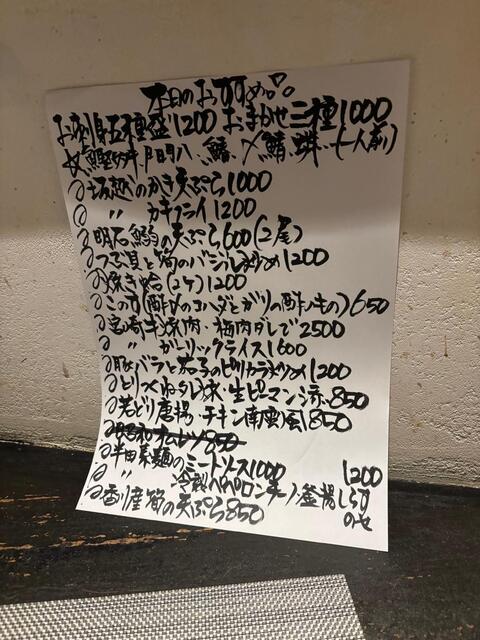 本日のおすすめ
お刺身五種盛1200 おまかせ三種1000
(一人前)
坂越のかき天ぷら1000
〃 カキフライ1200
明石鰯の天ぷら600(2尾)
つぶ貝と筍のバジル炒め1200
焼き蛤(2ケ)1200
この方(酢〆のコハダとガリの酢ノもの)650
宮崎牛焼肉・梅肉ダレで2500
〃 ガーリックライス1600
豚バラと茄子のピリカラ炒め1200
とりつくねタレ味・生ピーマン添850
若どり唐揚・チキン南蛮風850
850
半田素麺のミートソース1000
〃 冷製ペペロンチーノ釜揚しらすのせ 1200
香川産筍の天ぷら850